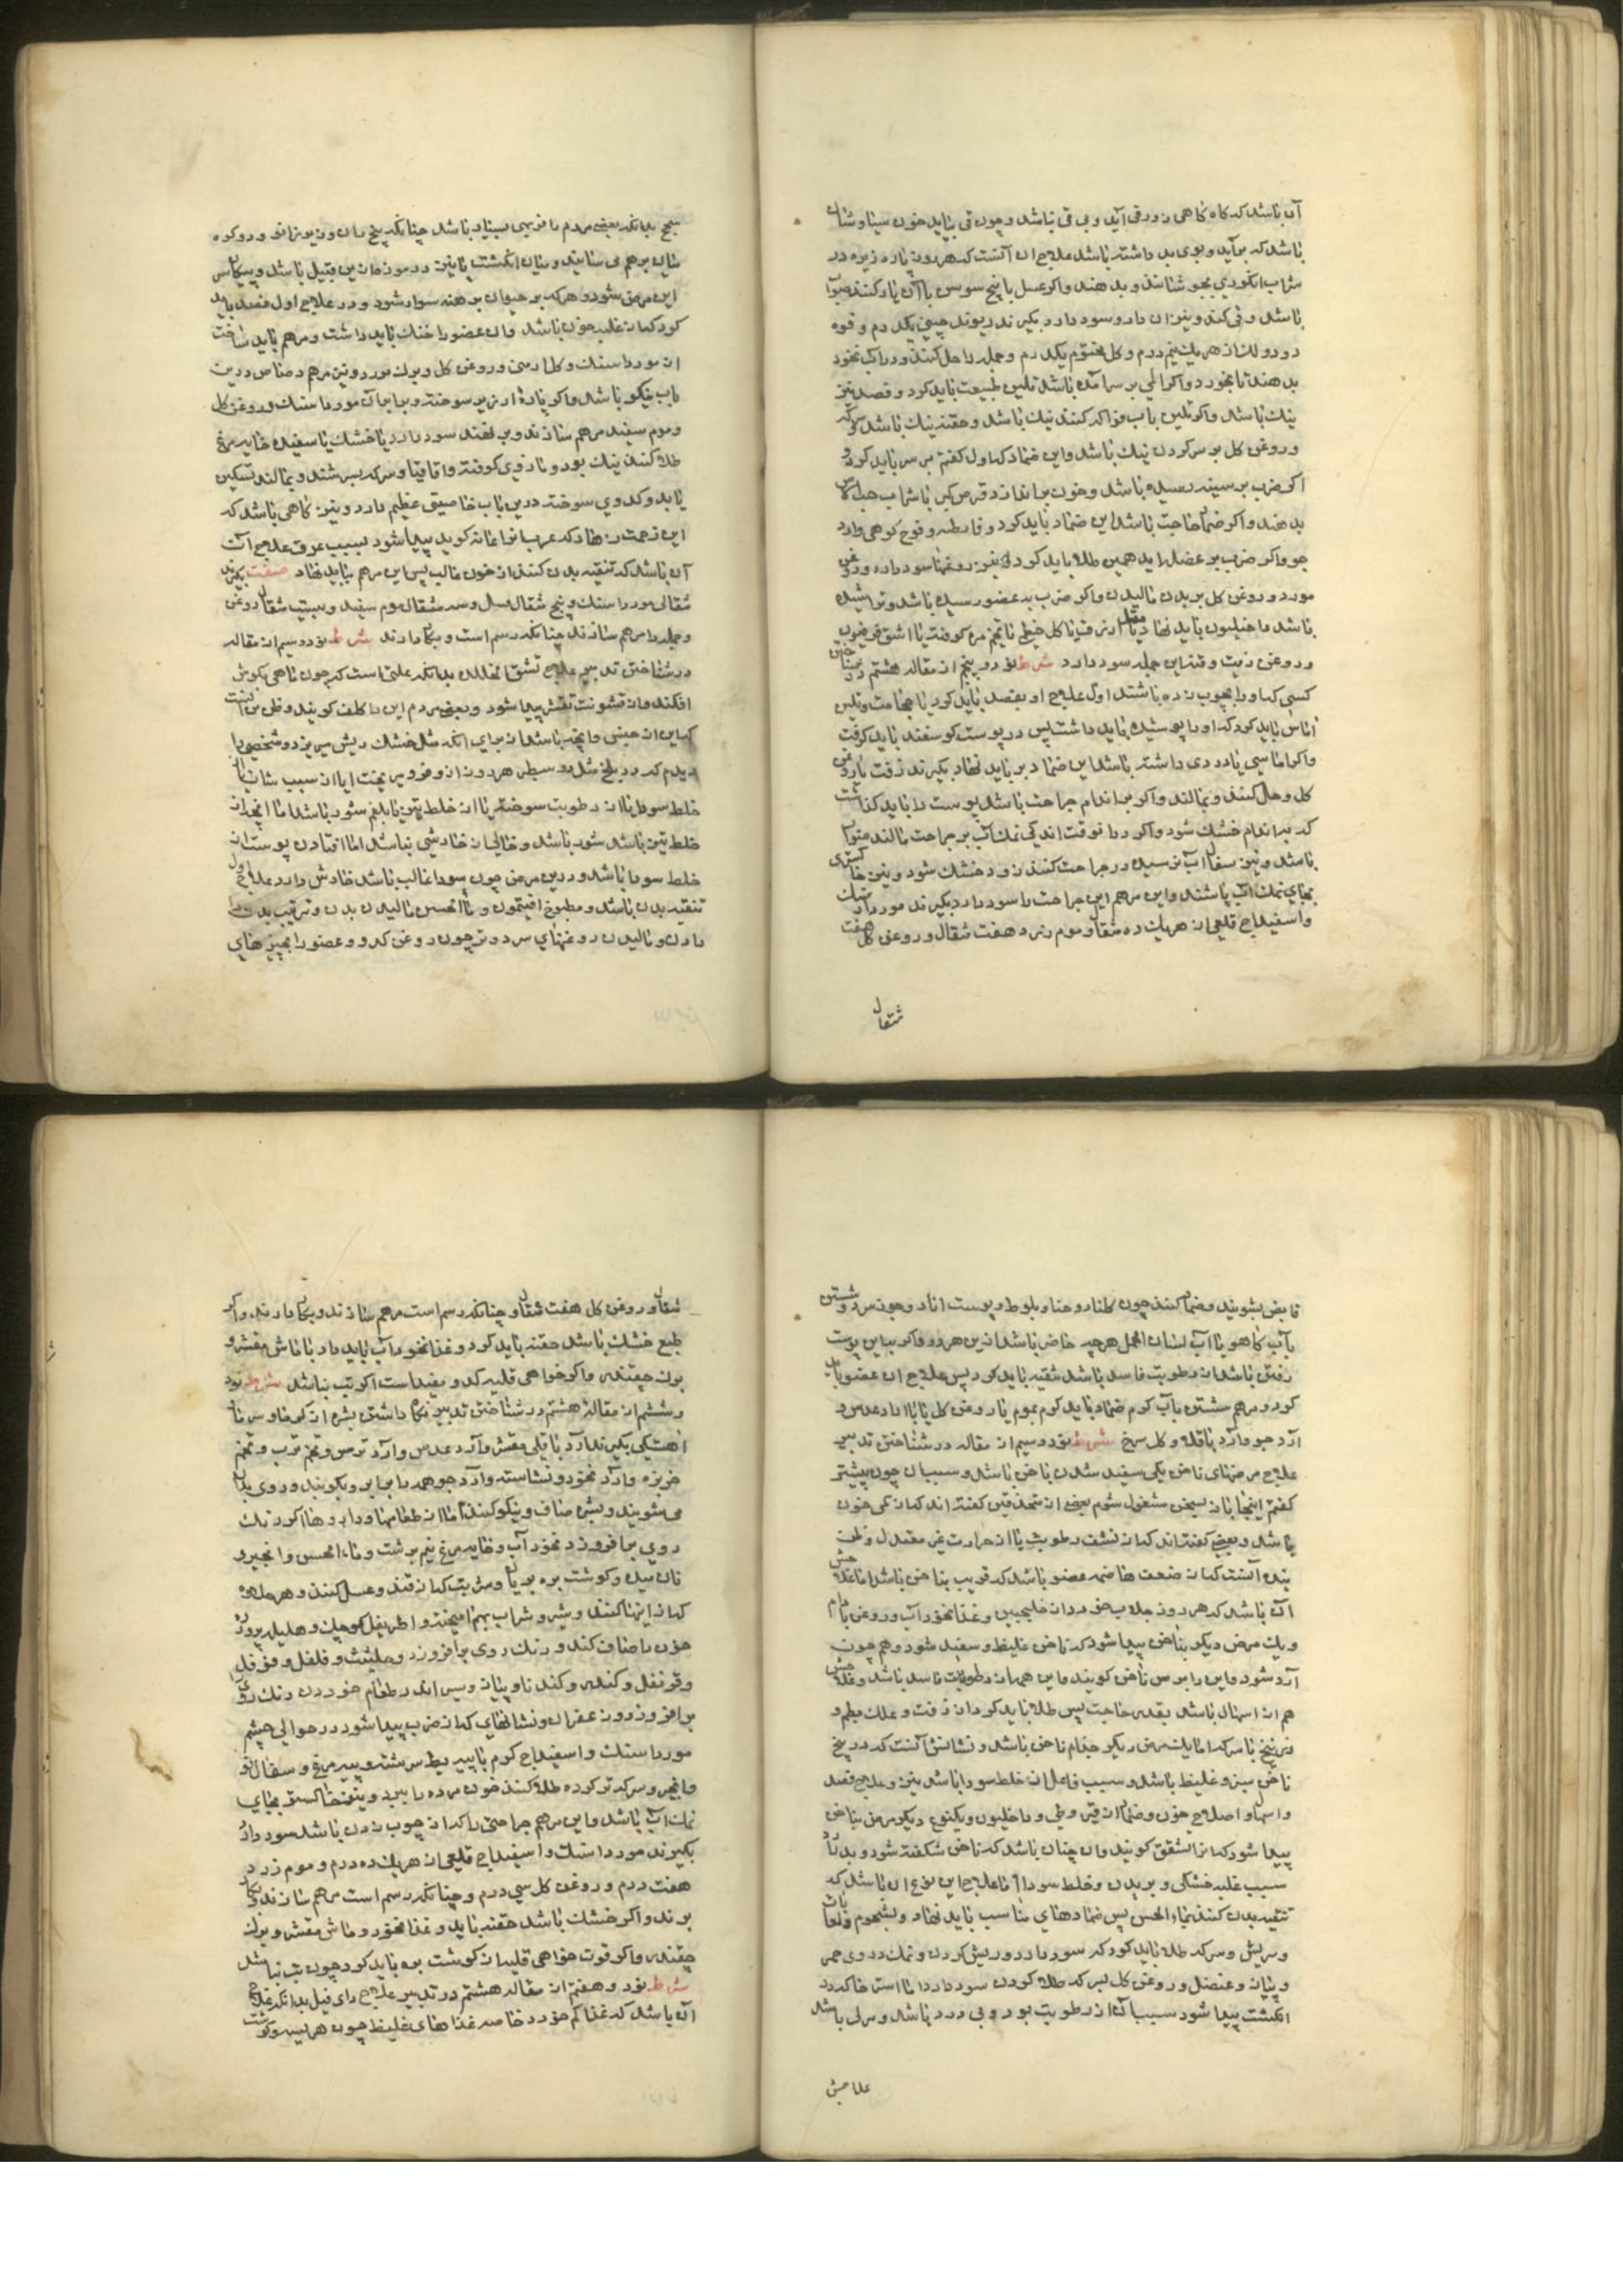 آن باشد که کاه کاهی زور قی آید و بی قی نباشد و چون قی بیاید خون سیاوشان
باشد که برآید و بوی بد داشته باشد علاج ان آنست که هر روز پاره زیره در
شراب انکوری بجوشانند و بدهند واکر عسل با بیخ سوسن با آن یار کنند صواب
باشد وقی کند و نیز ان دارو سود دارد بکیرند ریوند چینی یکدرم و فوه
دو دو لک از هریک نیم درم و کل مختوم یکدرم و جمله را حل کنند و در آب نخود
بدهند تا بخورد و اکر الی بر سر آمده باشد تلیین طبیعت باید کرد و فصد نیز
نیک باشد واکر تلیین باب فواکه کنند نیک باشد و حقنه نیک باشد سرکه
و روغن کل بر سر کردن نیک باشد و این ضماد که اول کفتم بر سر باید کرد و
اکر ضرب بر سینه رسیده باشد و خون براندازد قرص کهربا شراب حب الاس
بدهند واکر ضماد حاجت باشد این ضماد باید کرد و فارطه و قوج کوهی وارد
جو و اکر ضرب بر عضل اید همین طلا باید کرد و نیز روغنها سود دارد و روغن
مورد و روغن کل بر بدن مالیدن واکر ضرب به عضو رسیده باشد و خراشیده
باشد داخلیون باید نهاد یا مقل ازرق یا کل خطمی یا تخم مرو کوفته یا اشق و فرفیون
و روغن زیت و قند این جمله سود دارد شرط نود و پنجم از مقاله هشتم در شناختن
کسی که او را بچوب زده باشند اول علاج او بفصد باید کرد یا حجامت و تلیین
اماس باید کرد که او را پوشیده باید داشت پس در پوست کوسفند باید کرفت
واکر اماسی یا دردی داشته باشد این ضماد بر باید نهاد بکیرند زفت با روغن
کل و حل کنند و بمالند واکر بر اندام جراحت باشد پوست را باید کذاشت
که بر اندام خشک شود واکر در انوقت اندکی نمک آب بر جراحت مالند صواب
باشد و نیز سفال اب نرسیده در جراحت کنند زود خشک شود و نیز خاکستری
بجای نمک اب باشند و این مرهم این جراحت را سود دارد بکیرند مورداسنک
و اسفیداج قلعی از هریک ده مثقال و موم زرد هفت مثقال و روغن کل هفت
مثقال
سحج بدانکه بعضی مردم را فربهی بسیار باشد چنانکه بیخ ران و زیر زانو و در کوه
شان برهم می سایند و میان انکشت پا نیز و در موزه از این قبیل باشد و بیکاس
این مرض شود و هر که بر حیوان برهنه سوار شود و در علاج اول فصد باید
کرد که از غلبه خون باشد و ان عضو را خنک باید داشت و مرهم باید ساخت
از مورداسنک و کل ارمنی و روغن کل و برک مورد و نیز مرهم رصاص درین
باب نیکو باشد واکر پاره ارزیز سوخته و برابر آن مورداسنک و روغن کل
و موم سفید مرهم سازند و بر نهند سود دارد یا خشک یا سفیده خایه مرغ
طلا کنند نیک بود و مازوی کوفته و اقاقیا و سرکه بسرشند و بمالند تسکین
یابد و کدوی سوخته درین باب خاصیتی عظیم دارد و نیز کاهی باشد که
این زحمت زهار که عرب انرا عانه کوید پیدا شود بسبب عرق علاج آنست
آن باشد که تنقیه بدن کنند از خون غالب پس این مرهم بباید نهاد صفت بکیرند
مثقالی مورداسنک و پنج مثقال عسل و سه مثقال موم سفید و بیست مثقال روغن
و جمله را مرهم سازند چنانکه رسم است و بکار دارند شرط نود و سیم از مقاله
در شناختن تدبیر علاج تشقق الجلد بدانکه علتی است که چون ماهی پوش
افکند و از خشونت تقشر پیدا شود و بعضی مردم این را کلف کویند و ظن من انست
که این از جنس وی نه باشد از برای انکه مثل خشک ریش میریزد و شخصی را
دیدم که در بلخ مثل دو سطبر هر روز از و فرو میریخت ایا از سبب شان یا
خلط سودا یا از رطوبت سوخته یا از خلط تیز با بلغم شور باشد اما انچه از
خلط تیز باشد شور باشد و خالی از خارشی نباشد اما افتادن پوست از
خلط سودا باشد و درین مرض چون سودا غالب باشد خارش دارد علاج اول
تنقیه بدن باشد و مطبوخ افتیمون و ماالجبن مالیدن بدن و ترتیب بدن را
دادن و مالیدن روغنهای سرد و تر چون روغن کدو و عضو را بچیزهای
قابض بشویند و ضماد کنند چون کلنار و حنا و بلوط و پوست انار و جوز سرو شستن
باب کاهو یا اب لسان الحمل هر چه حاضر باشد ازین هر دو واکر سبب این پوست
رفتن باشد از رطوبت فاسد باشد تنقیه باید کرد پس علاج ان عضو باید
کرد و مرهم شستن باب کرم ضماد باید کرم بموم یا روغن کل یا با ارد عدس و
ارد جو و ارد باقلا و کل سرخ شرط نود و سیم از مقاله در شناختن تدبیر
علاج مرضهای ناخن یکی سفید شدن ناخن باشد و سبب ان چون پیشتر
کفتم اینجا باز بسخن مشغول شوم بعضی از متقدمین کفته اند که از کمی خون
باشد و بعضی کفته اند که از نشف رطوبت یا از حرارت غیر معتدل و ظن
بنده آنست که از ضعف هاضمه عضو باشد که قریب بناخن باشد اما علاجش
آن باشد که هر روز جلاب خورد از خلنجبین و غذا نخوداب و روغن بادام
و یک مرض دیکر بناخن پیدا شود که ناخن غلیظ و سفید شود و هم چون
آرد شود و این را برس ناخن کویند و این هم از رطوبات فاسد باشد و علاجش
هم از اسهال باشد بقدر حاجت پس طلا باید کرد از زفت و علک بطم و
زرنیخ با سرکه اما یک مرض دیکر جذام ناخن باشد و نشانش آنست که در بیخ
ناخن سبز و غلیظ باشد و سبب فاعل از خلط سودا باشد نیز و علاج فصد
و اسهال و اصلاح خون و ضماد از قیروطی و داخلیون و یکنوع دیکر مرض بناخن
پیدا شود که انرا تشقق کویند و ان چنان باشد که ناخن شکفته شود و بدرازا
سبب غلبه خشکی و بریدن و خلط سودا اما علاج این نوع ان باشد که
تنقیه بدن کنند بماء الجبن پس ضمادهای مناسب باید نهاد و بشحوم و لعابات
و سریش و سرکه طلا باید کرد که سود دارد و ریش کردن و نمک دردی خمر
و پیاز و عنصل و روغن کل بسرکه طلا کردن سود دارد اما استرخا که در
انکشت پیدا شود سبب آن از رطوبت بود و بی درد باشد و سرلی باشد
علامتش
مثقال و روغن کل هفت مثقال و چنانکه رسم است مرهم سازند و بکار دارند واکر
طبع خشک باشد حقنه باید کرد و غذا نخوداب باید داد با ماش مقشر و
برک چقندر واکر خواهی قلیه کدو مفید است اکر تب نباشد شرط نود
و ششم از مقاله هشتم در شناختن تدبیر نکاه داشتن بشره از کرما و سرما
اهستکی بکیرند آرد باقلی مقشر و آرد عدس و آرد ترمس و تخم ترب و تخم
خربزه و آرد نخود و نشاسته و آرد جو همه را برابر و بکوبند و روی بدان
می شویند و بشره صاف و نیکو کنند اما از طعامها و داروها اکر رنک
روی برافروزد نخوداب و خایه مرغ نیم برشت و ماء الجبن و انجیر و
نان میده و کوشت بره بریان و شربت که از قند و عسل کنند و هر حلوا
که از اینها کنند و شیر و شراب بهم امیخته و اطریفل کوچک و هلیله پرورده
خون را صاف کند و رنک روی برافروزد و حلتیت و فلفل و فوفل
و قرنفل و کندر و کندنا و پیاز و سیر اندر طعام خوردن رنک روی
برافروزد و زعفران و نشانهای که از ضرب پیدا شود در حوالی چشم
مورداسنک و اسفیداج کرم با پیه بط سرشته و پیه مرغ و سفال نو
و انجیر و سرکه تر کرده طلا کنند خون مرده را ببرد و نیز خاکستر بجای
نمک آب باشد و این مرهم جراحتی را که از چوب زدن باشد سود دارد
بکیرند مورداسنک و اسفیداج قلعی از هریک ده درم و موم زرد
هفت درم و روغن کل سی درم و چنانکه رسم است مرهم سازند و بکار
برند واکر خشک باشد حقنه باید و غذا نخود و ماش مقشر و برک
چقندر واکر قوت خواهی قلیه از کوشت بره باید کرد چون تب نباشد
شرط نود و هفتم از مقاله هشتم در تدبیر علاج دای فیل بدانکه علاج
آن باشد که غذا کم خورد خاصه غذاهای غلیظ چون هریسه و کوشت